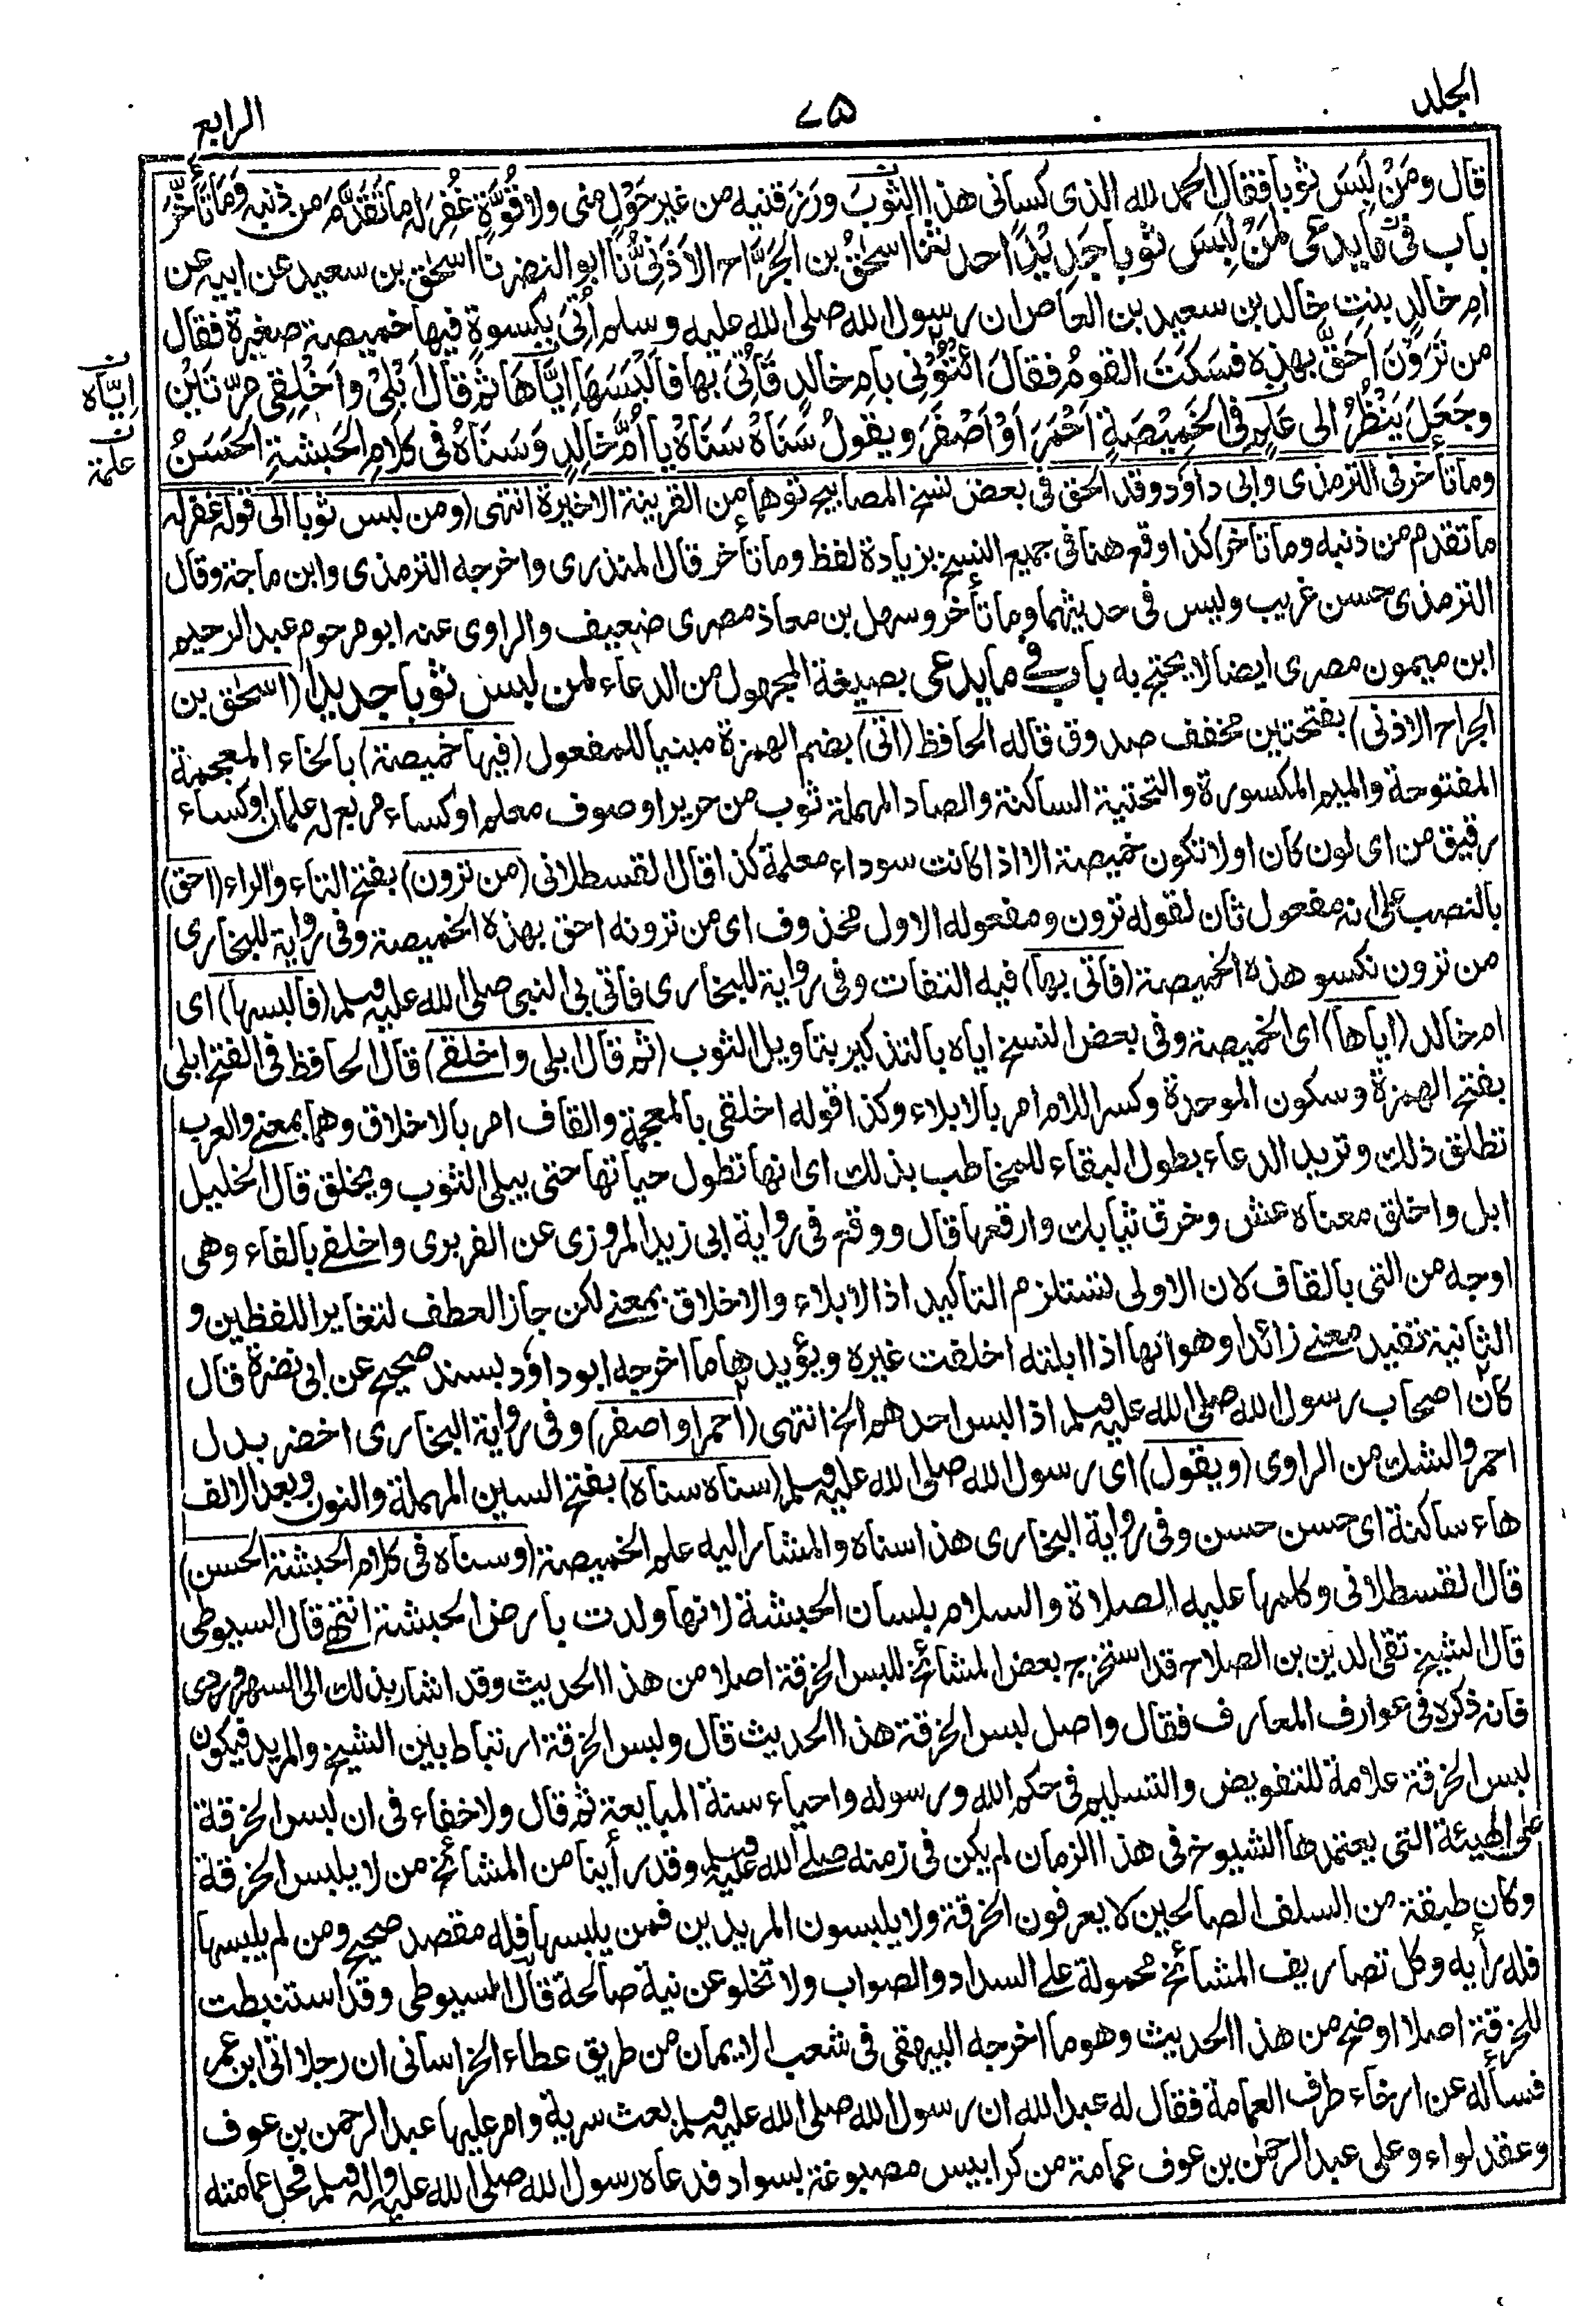 الجلد
٧٥
الرابع
قال ومَنْ لَبِسَ ثوبا فقال الحمد لله الذى كسانى هذا الثوبَ ورَزَقنيه من غير حَوْلٍ منى ولا قُوَّةٍ غُفِرَ له ما تَقَدَّمَ من ذنبه وَمَا تَأَخَّرَ
باب فى ما يدعى لِمَنْ لَبِسَ ثوبا جَدِيْدًا حدثنا اسحٰقُ بن الجَرَّاح الاَذَنِىُّ نا ابو النضر نا اسحٰق بن سعيد عن ابيه عن
ام خالدٍ بنتِ خالد بن سعيد بن العاص ان رسول الله صلى الله عليه وسلم أُتِىَ بِكسوةٍ فيها خميصة صغيرة فقال
من تَرَوْنَ اَحَقَّ بهذه فسَكَتَ القومُ فقالَ ائْتُوْنِى بامِ خالدٍ فَأُتِىَ بها فاَلْبَسَهَا اِيَّاهَا ثم قالَ اَبْلِىْ واَخْلِقِى مرّتَيْنِ
وجَعَلَ يَنْظُرُ الى عَلَمٍ فى الخَمِيْصَةِ اَحْمَرَ اَوْ اَصْفَرَ ويقولُ سَنَاهْ سَنَاهْ يا اُمَّ خَالِدٍ وَسَنَاهُ فى كلام الحَبشةِ الحَسَنُ
اِيَّاه
علمة
وما تأخر فى الترمذى وابى داود وقد الحق فى بعض نسخ المصابيح توهما من القرينة الاخيرة انتهى (ومن لبس ثوبا الى قوله غفر له
ما تقدم من ذنبه وما تاخر) كذا وقع هنا فى جميع النسخ بزيادة لفظ وما تأخر قال المنذرى واخرجه الترمذى وابن ماجة وقال
الترمذى حسن غريب وليس فى حديثهما وما تأخر وسهل بن معاذ مصرى ضعيف والراوى عنه ابو مرحوم عبد الرحيم
ابن ميمون مصرى ايضا لا يحتج به باب فى ما يدعى بصيغة المجهول من الدعاء لمن لبس ثوبا جديدا (اسحٰق بن
الجراح الاذنى) بفتحتين مخفف صدوق قاله الحافظ (اتى) بضم الهمزة مبنيا للمفعول (فيها خميصة) بالخاء المعجمة
المفتوحة والميم المكسورة والتحتية الساكنة والصاد المهملة ثوب من حرير او صوف معلم او كساء مربع له علمان او كساء
رقيق من اى لون كان او لا تكون خميصة الا اذا كانت سوداء معلمة كذا قال القسطلانى (من ترون) بفتح التاء والراء (احق)
بالنصب على انه مفعول ثان لقوله ترون ومفعوله الاول محذوف اى من ترونه احق بهذه الخميصة وفى رواية للبخارى
من ترون نكسو هذه الخميصة (فاتى بها) فيه التفات وفى رواية للبخارى فاتى بى النبى صلى الله عليه وسلم (فالبسها) اى
ام خالد (اياها) اى الخميصة وفى بعض النسخ اياه بالتذكير بتاويل الثوب (ثم قال ابلى واخلقى) قال الحافظ فى الفتح ابلى
بفتح الهمزة وسكون الموحدة وكسر اللام امر بالابلاء وكذا قوله اخلقى بالمعجمة والقاف امر بالاخلاق وهما بمعنى والعرب
تطلق ذلك وتريد الدعاء بطول البقاء للمخاطب بذلك اى انها تطول حياتها حتى يبلى الثوب ويخلق قال الخليل
ابل واخلق معناه عش وخرق ثيابك وارقعها قال ووقع فى رواية ابى زيد المروزى عن الفربرى واخلفى بالفاء وهى
اوجه من التى بالقاف لان الاولى تستلزم التاكيد اذ الابلاء والاخلاق بمعنى لكن جاز العطف لتغاير اللفظين و
الثانية تفيد معنى زائدا وهو انها اذا ابلته اخلفت غيره ويؤيدها ما اخرجه ابو داؤد بسند صحيح عن ابى نضرة قال
كان اصحاب رسول الله صلى الله عليه وسلم اذا لبس احدهم الخ انتهى (احمر او اصفر) وفى رواية البخارى اخضر بدل
احمر والشك من الراوى (ويقول) اى رسول الله صلى الله عليه وسلم (سناه سناه) بفتح السين المهملة والنون وبعد الالف
هاء ساكنة اى حسن حسن وفى رواية البخارى هذا سناه والمشار اليه علم الخميصة (وسناه فى كلام الحبشة الحسن)
قال القسطلانى وكلمها عليه الصلاة والسلام بلسان الحبشة لانها ولدت بارض الحبشة انتهى قال السيوطى
قال الشيخ تقى الدين بن الصلاح قد استخرج بعض المشائخ للبس الخرقة اصلا من هذا الحديث وقد اشار بذلك الى السهروردى
فانه ذكره فى عوارف المعارف فقال واصل لبس الخرقة هذا الحديث قال ولبس الخرقة ارتباط بين الشيخ والمريد فيكون
لبس الخرقة علامة للتفويض والتسليم فى حكم الله ورسوله واحياء سنة المبايعة ثم قال ولا خفاء فى ان لبس الخرقة
على الهيئة التى يعتمدها الشيوخ فى هذا الزمان لم يكن فى زمنه صلى الله عليه وسلم وقد رأينا من المشائخ من لا يلبس الخرقة
وكان طبقة من السلف الصالحين لا يعرفون الخرقة ولا يلبسون المريدين فمن يلبسها فله مقصد صحيح ومن لم يلبسها
فله رأيه وكل تصاريف المشائخ محمولة على السداد والصواب ولا تخلو عن نية صالحة قال السيوطى وقد استنبطت
للخرقة اصلا اوضح من هذا الحديث وهو ما اخرجه البيهقى فى شعب الايمان من طريق عطاء الخراسانى ان رجلا اتى ابن عمر
فسأله عن ارخاء طرف العمامة فقال له عبد الله ان رسول الله صلى الله عليه وسلم بعث سرية وامر عليها عبد الرحمن بن عوف
وعقد لواء وعلى عبد الرحمٰن بن عوف عمامة من كرابيس مصبوغة بسواد فدعاه رسول الله صلى الله عليه واله وسلم فحل عمامته